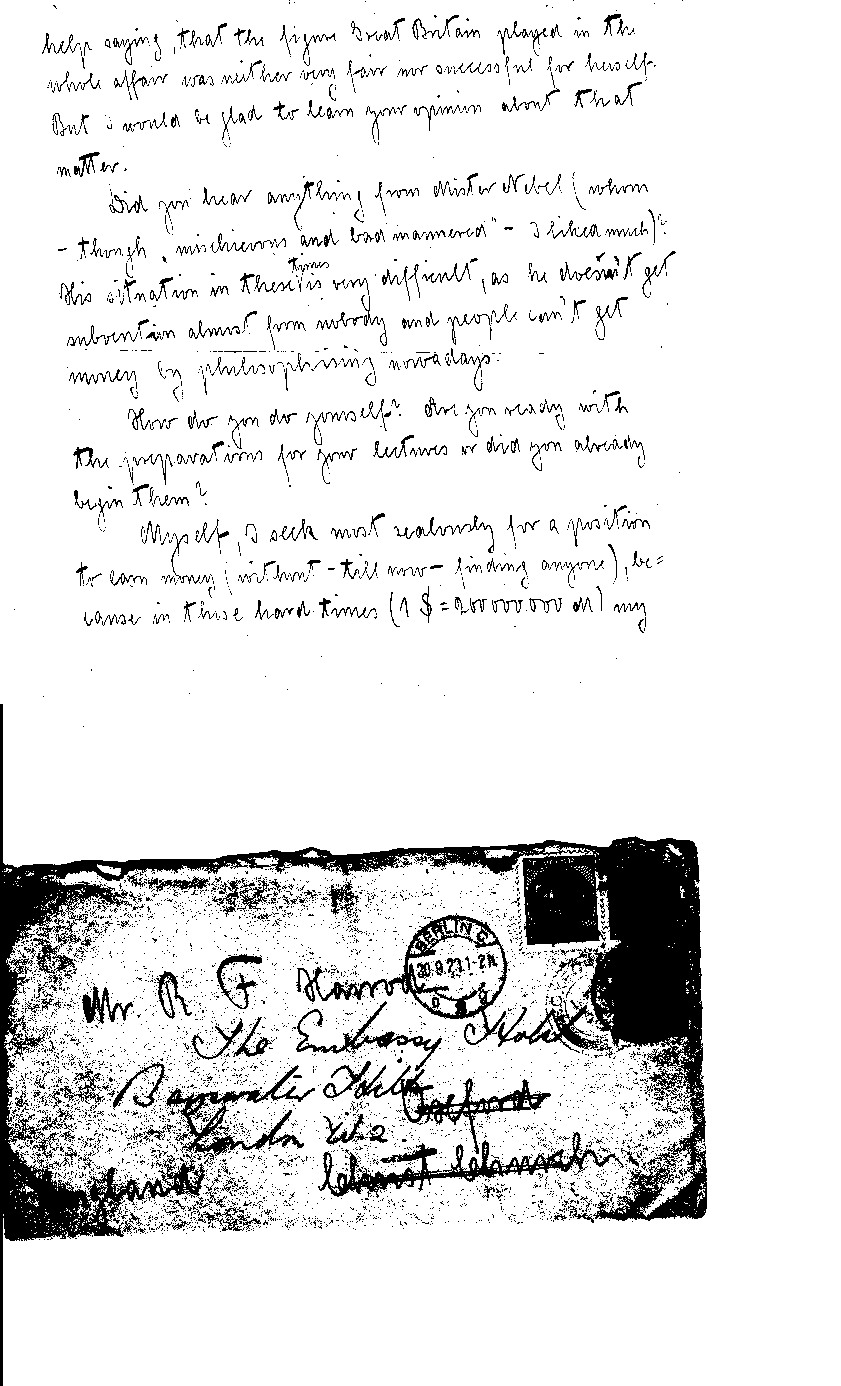 help saying, that the figure Great Britain played in the
whole affair was neither very fair nor successful for herself.
But I would be glad to learn your opinion about that
matter.
Did you hear anything from Mister Nebel (whom
- though „mischievous and bad mannered" - I liked much)?
His situation in these times is very difficult, as he doesn't get
subvention almost from nobody and people can't get
money by philosophising nowadays.
How do you do yourself? Are you ready with
the preparations for your lectures or did you already
begin them?
Myself, I seek most zealously for a position
to earn money (without - till now - finding anyone), be=
cause in these hard times (1 $ = 200000000 M) my
BERLIN C
30.9.23.1-2N.
Mr. R F. Harrod
The Embassy Hotel
Bayswater Hill
Oxford
London W.2
England
Christ Church